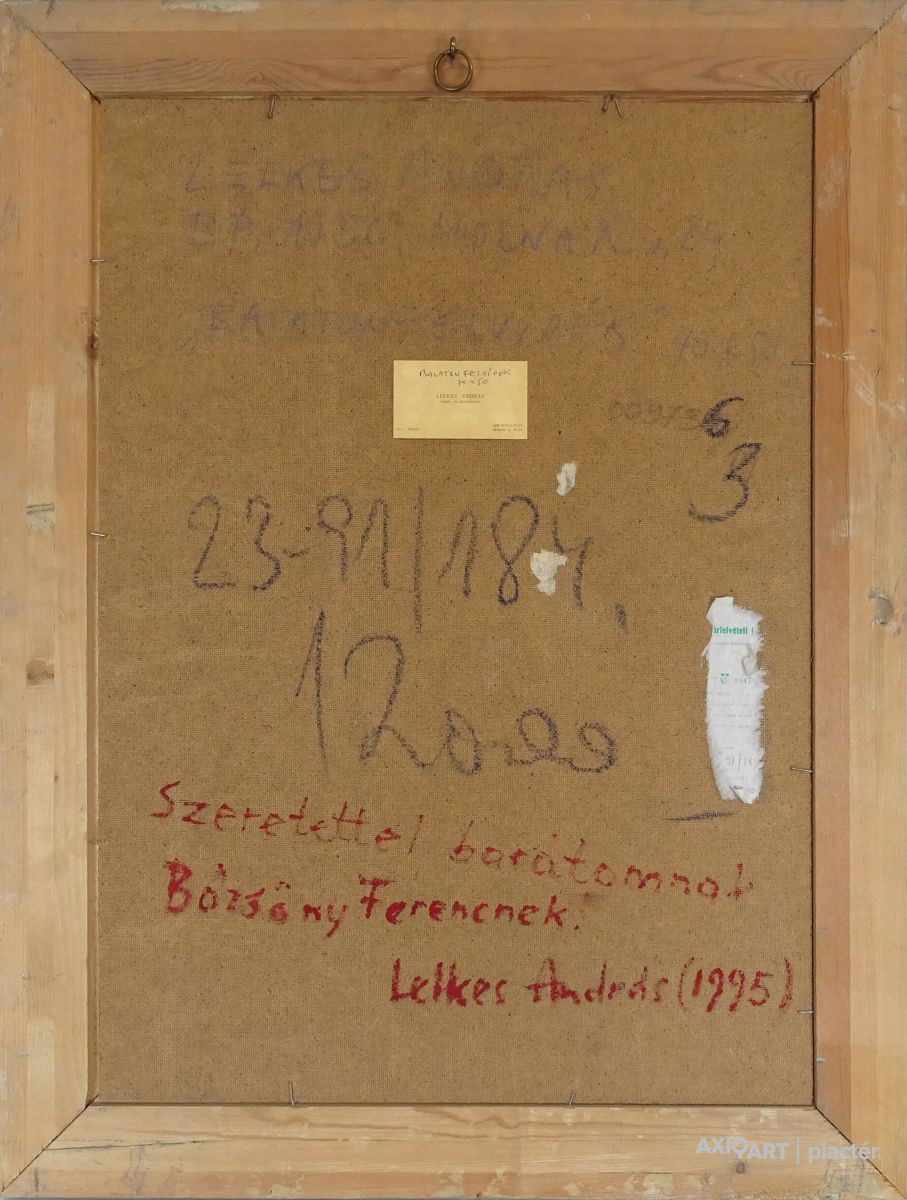 LELKES ANDRÁS
BP, MOLNÁR, 24
"BALATON FELVIDÉK" 70x50
BALATON FELVIDÉK
70 x 50
LELKES ANDRÁS
6
3
23-91/184,
12000
árfelvételi
Szeretettel barátomnak
Bőzsöny Ferencnek.
Lelkes András (1995)
AXIOART | piactér